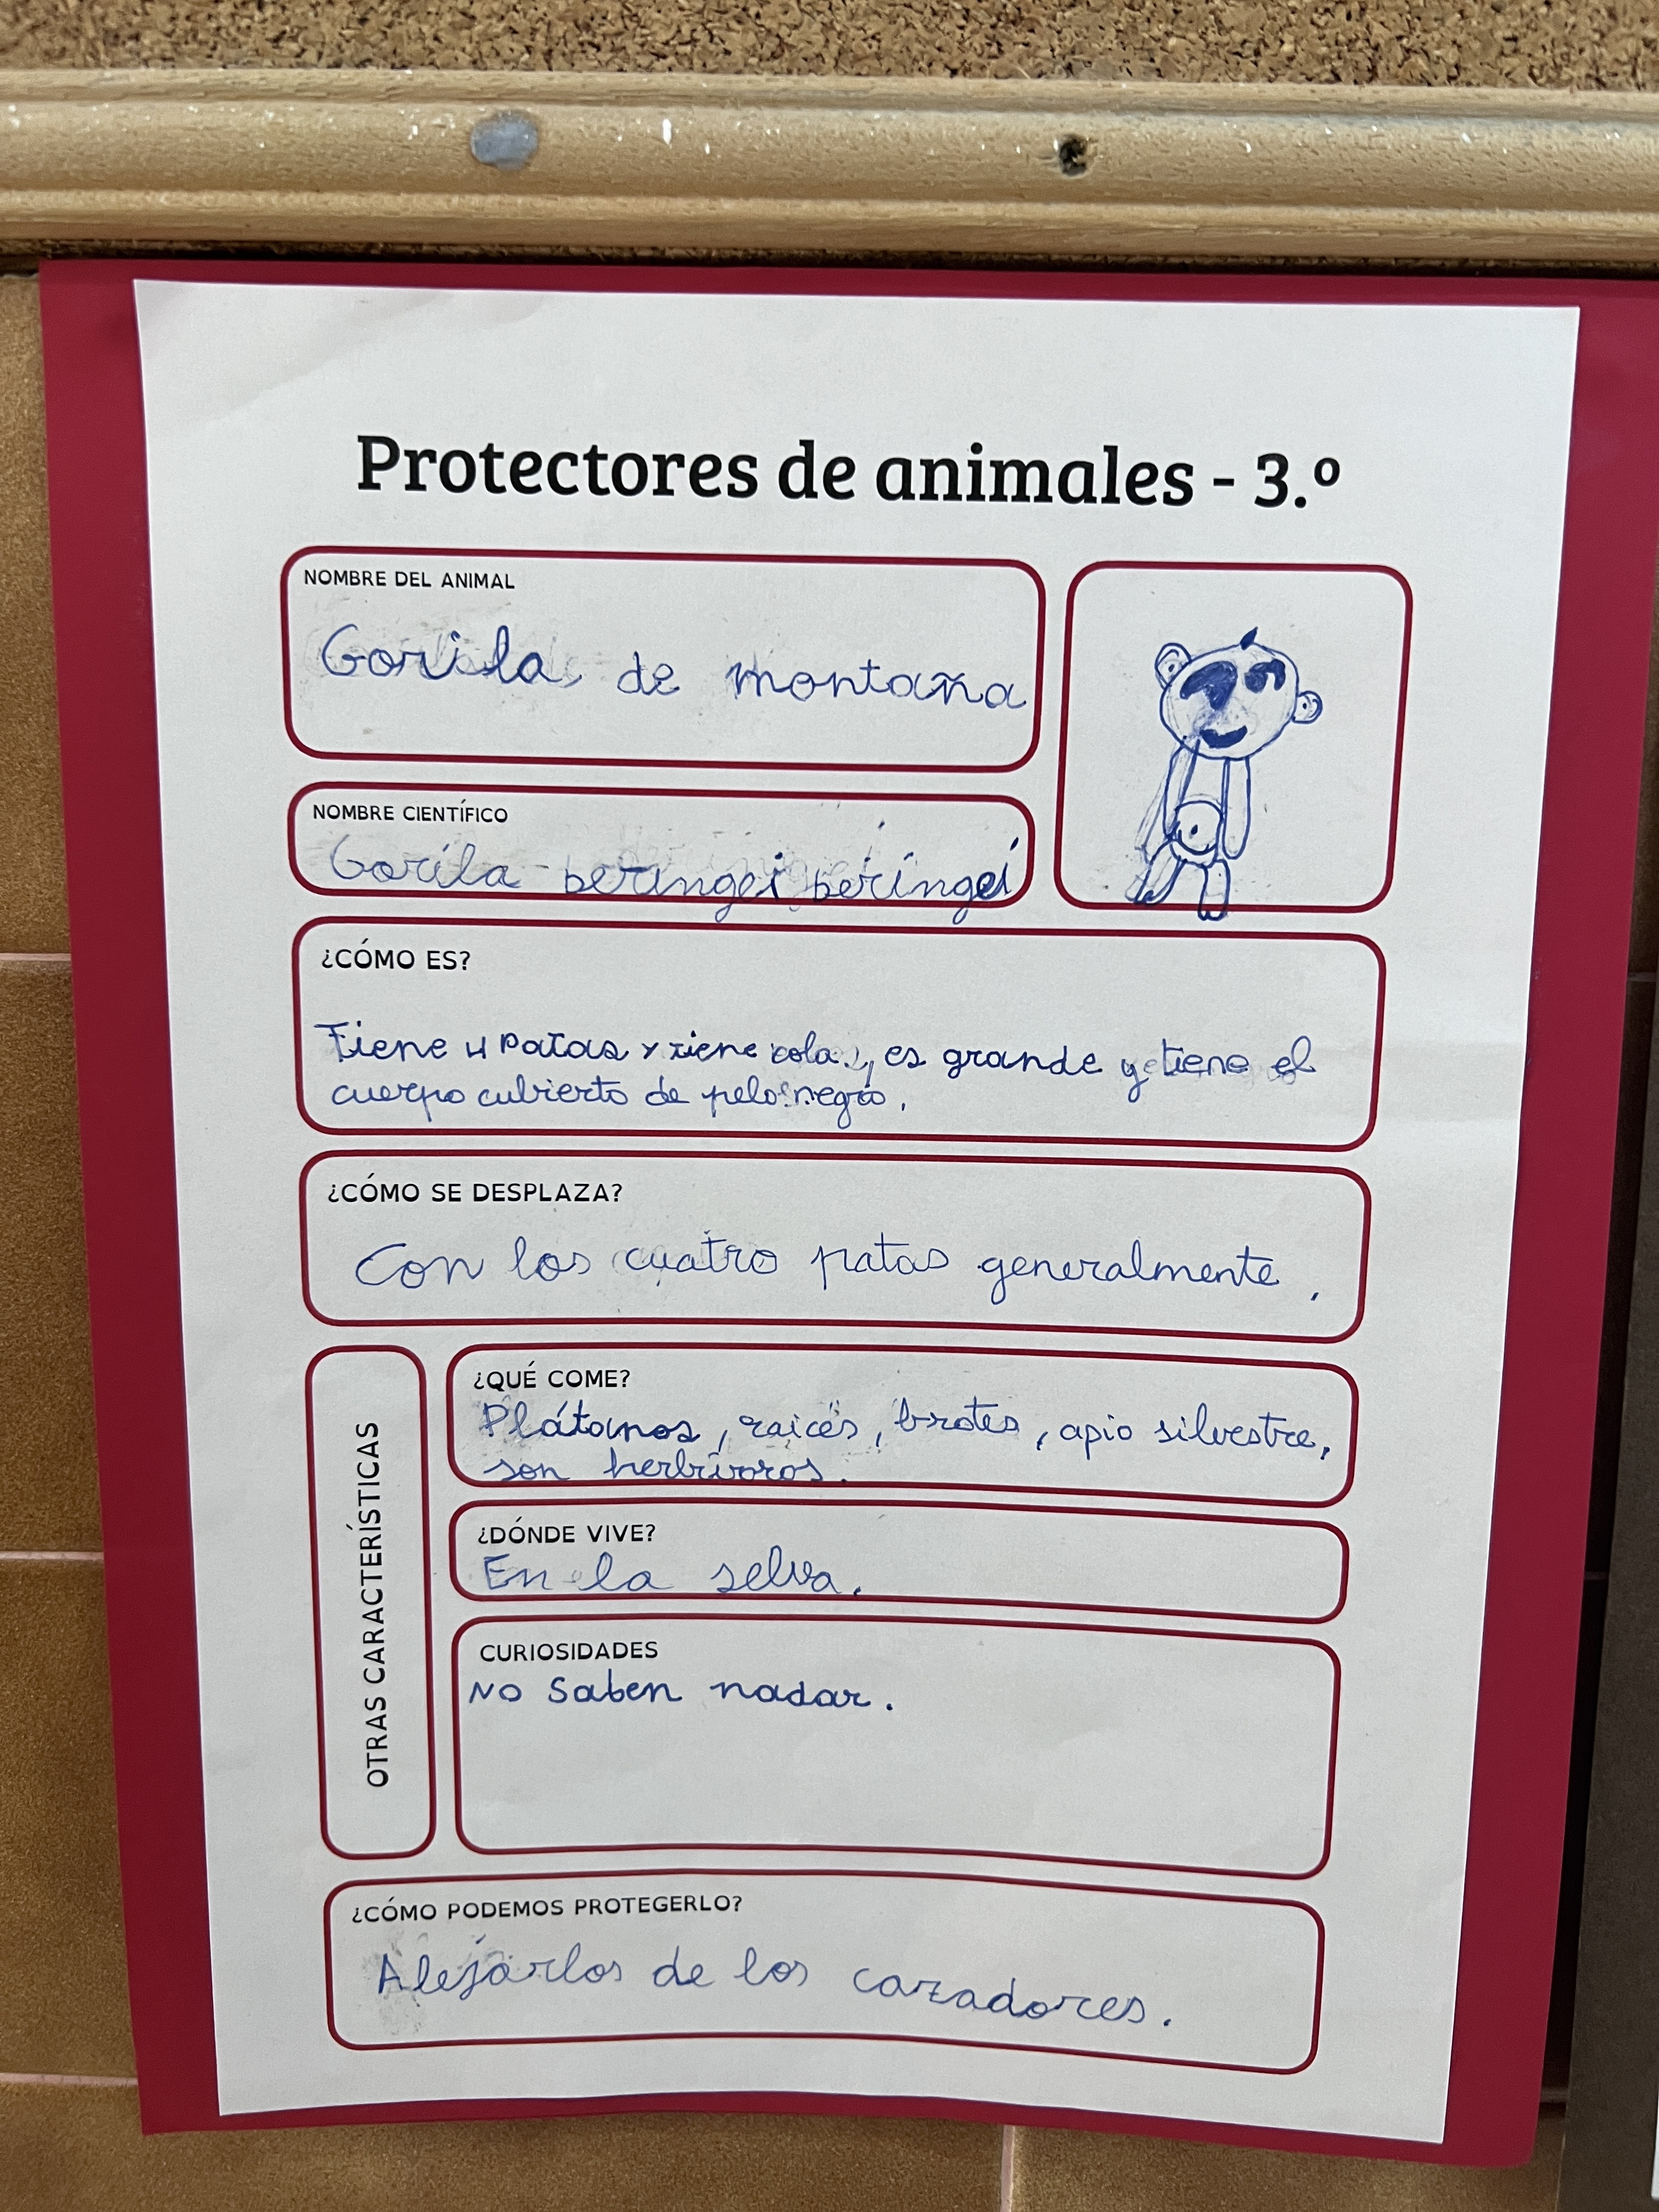 Protectores de animales - 3.º
NOMBRE DEL ANIMAL
Gorila de montaña
NOMBRE CIENTÍFICO
Gorila beringei beringei
¿CÓMO ES?
Tiene 4 patas y tiene cola, es grande y tiene el
cuerpo cubierto de pelo negro.
¿CÓMO SE DESPLAZA?
Con los cuatro patas generalmente.
OTRAS CARACTERÍSTICAS
¿QUÉ COME?
Plátanos, raices, brotes, apio silvestre,
son herbívoros.
¿DÓNDE VIVE?
En la selva.
CURIOSIDADES
No saben nadar.
¿CÓMO PODEMOS PROTEGERLO?
Alejarlos de los cazadores.